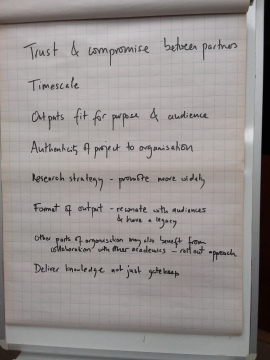 Trust & compromise between partners
Timescale
Outputs fit for purpose & audience
Authenticity of project to organisation
Research strategy - promote more widely
Format of output - resonate with audiences
& have a legacy
Other parts of organisation may also benefit from
collaboration with other academics - roll out approach
Deliver knowledge not just gatekeep